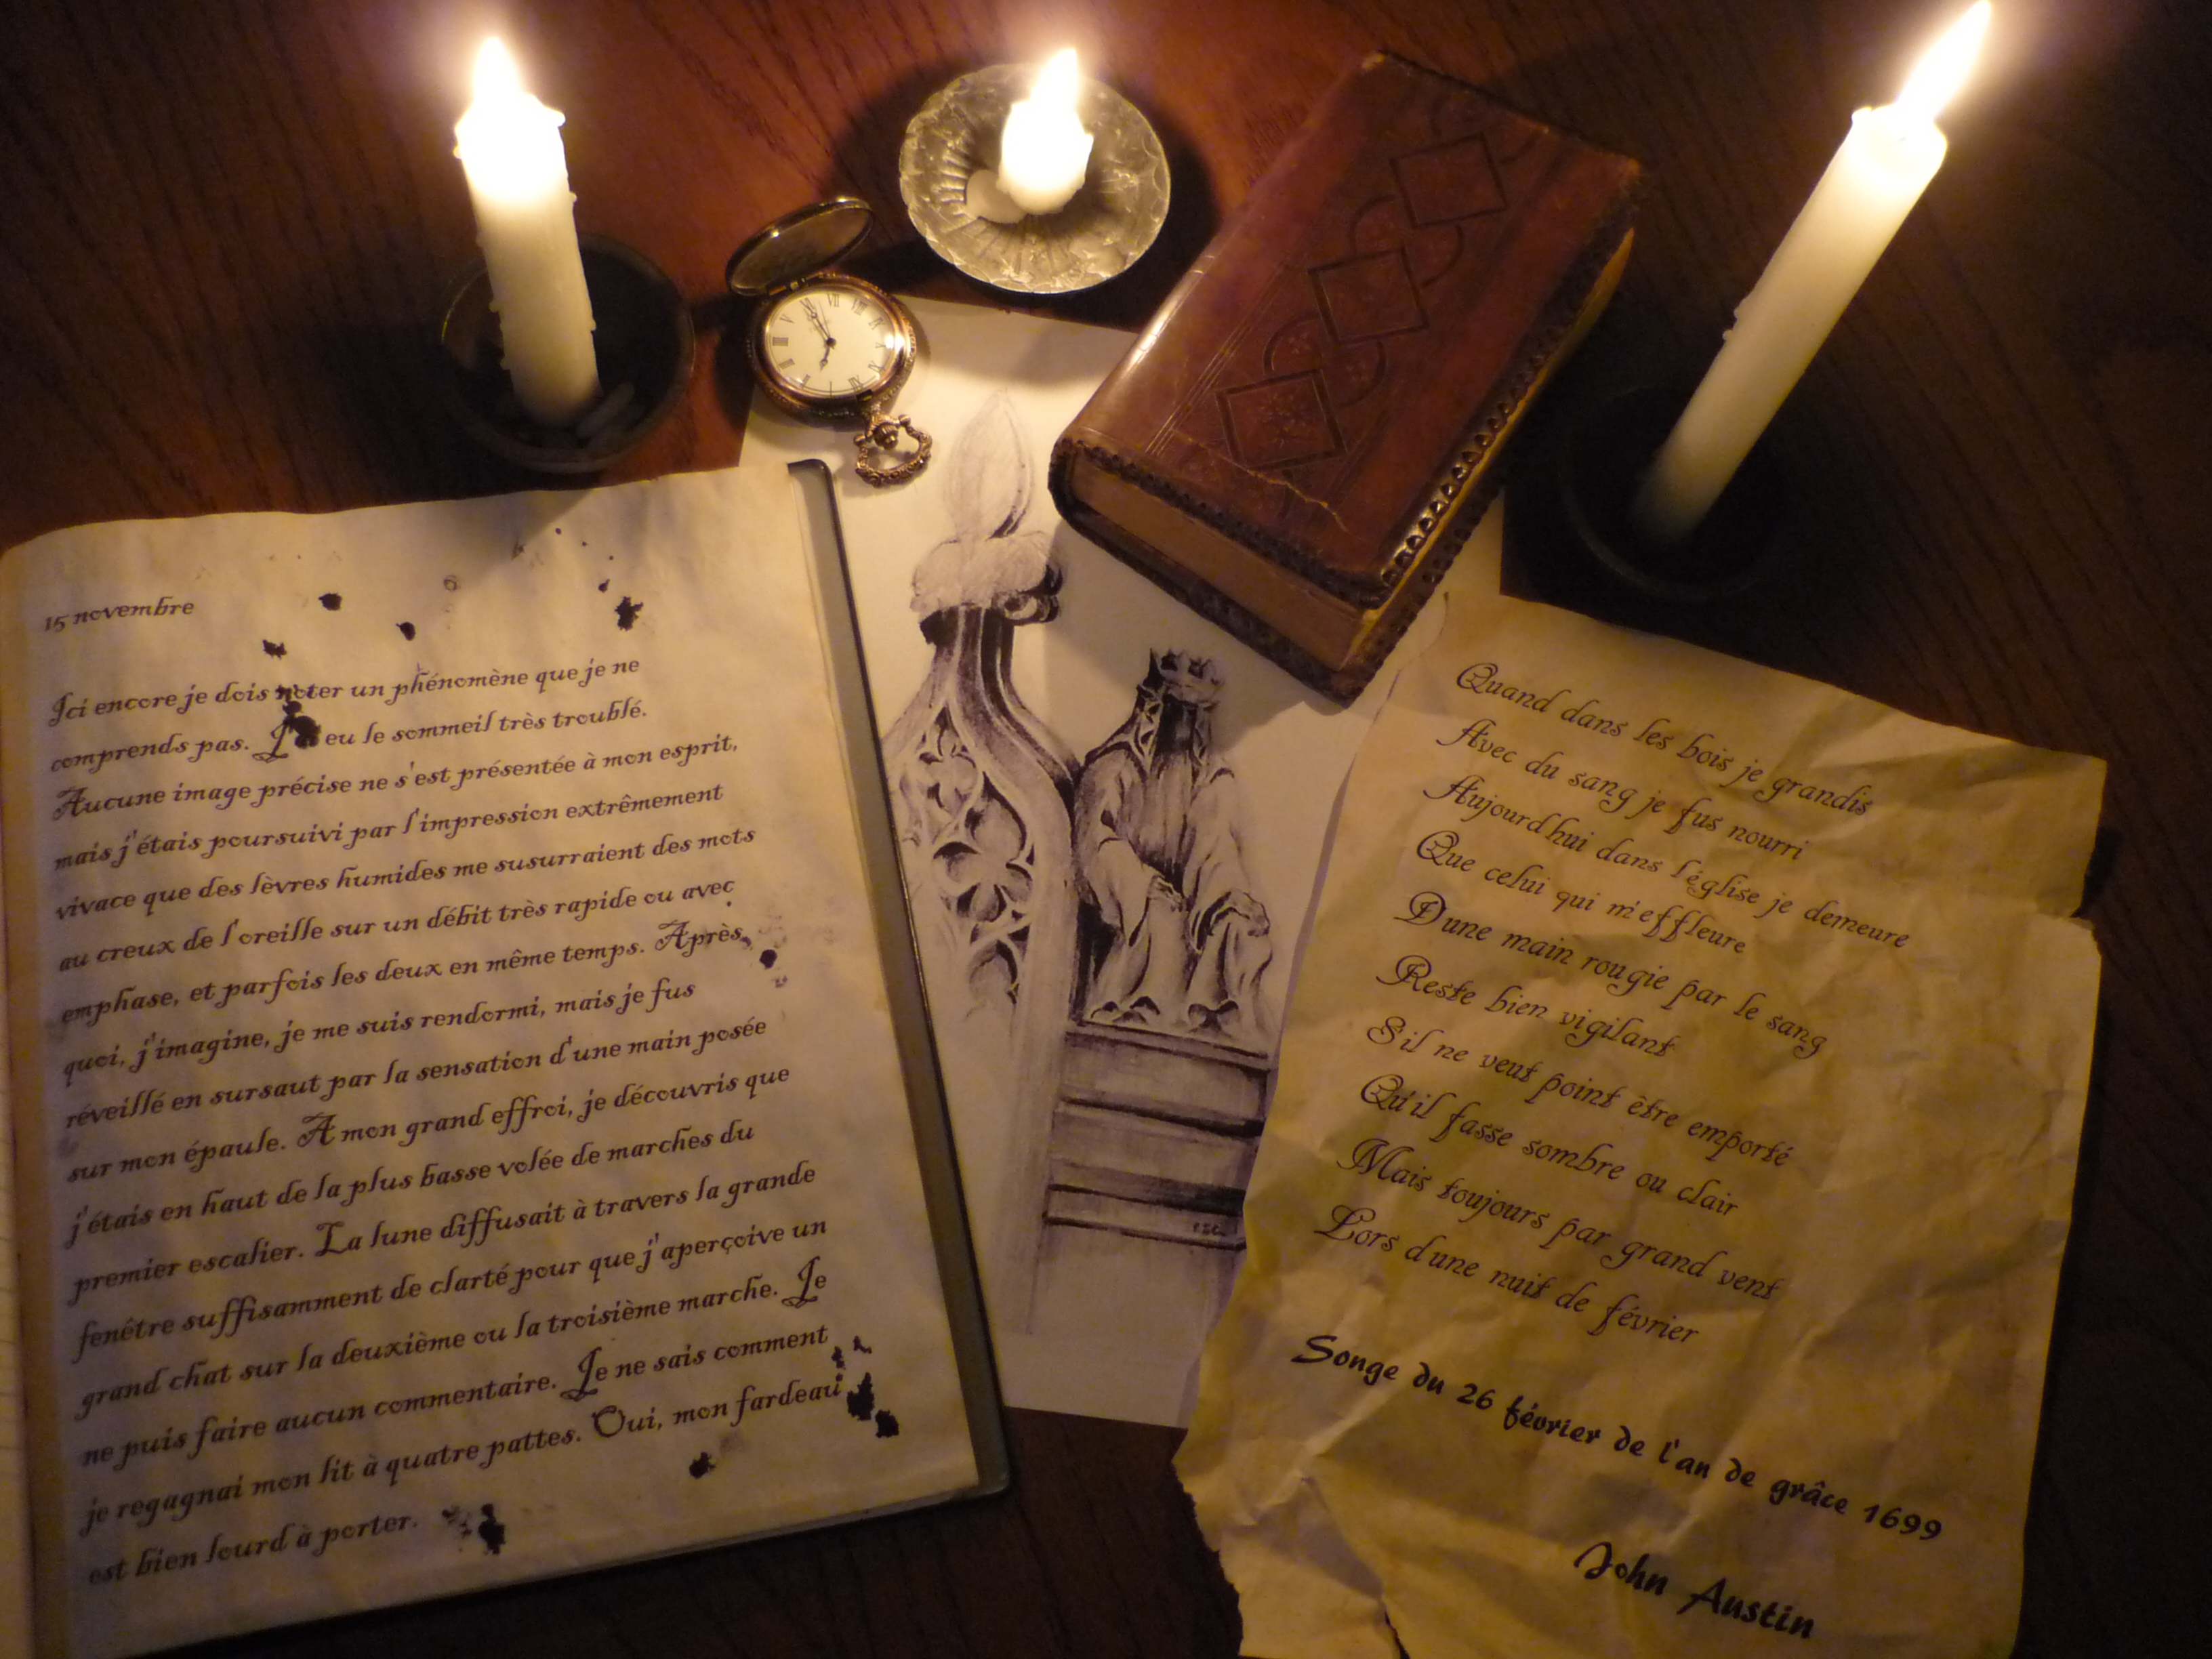 15 novembre
Ici encore je dois noter un phénomène que je ne
comprends pas. eu le sommeil très troublé.
Aucune image précise ne s'est présentée à mon esprit,
mais j'étais poursuivi par l'impression extrêmement
vivace que des lèvres humides me susurraient des mots
au creux de l'oreille sur un débit très rapide ou avec
emphase, et parfois les deux en même temps. Après
quoi, j'imagine, je me suis rendormi, mais je fus
réveillé en sursaut par la sensation d'une main posée
sur mon épaule. A mon grand effroi, je découvris que
j'étais en haut de la plus basse volée de marches du
premier escalier. La lune diffusait à travers la grande
fenêtre suffisamment de clarté pour que j'aperçoive un
grand chat sur la deuxième ou la troisième marche. Je
ne puis faire aucun commentaire. Je ne sais comment
je regagnai mon lit à quatre pattes. Oui, mon fardeau
est bien lourd à porter.
Quand dans les bois je grandis
Avec du sang je fus nourri
Aujourd'hui dans l'église je demeure
Que celui qui m'effleure
D'une main rougie par le sang
Reste bien vigilant
S'il ne veut point être emporté
Qu'il fasse sombre ou clair
Mais toujours par grand vent
Lors d'une nuit de février
Songe du 26 février de l'an de grâce 1699
John Austin